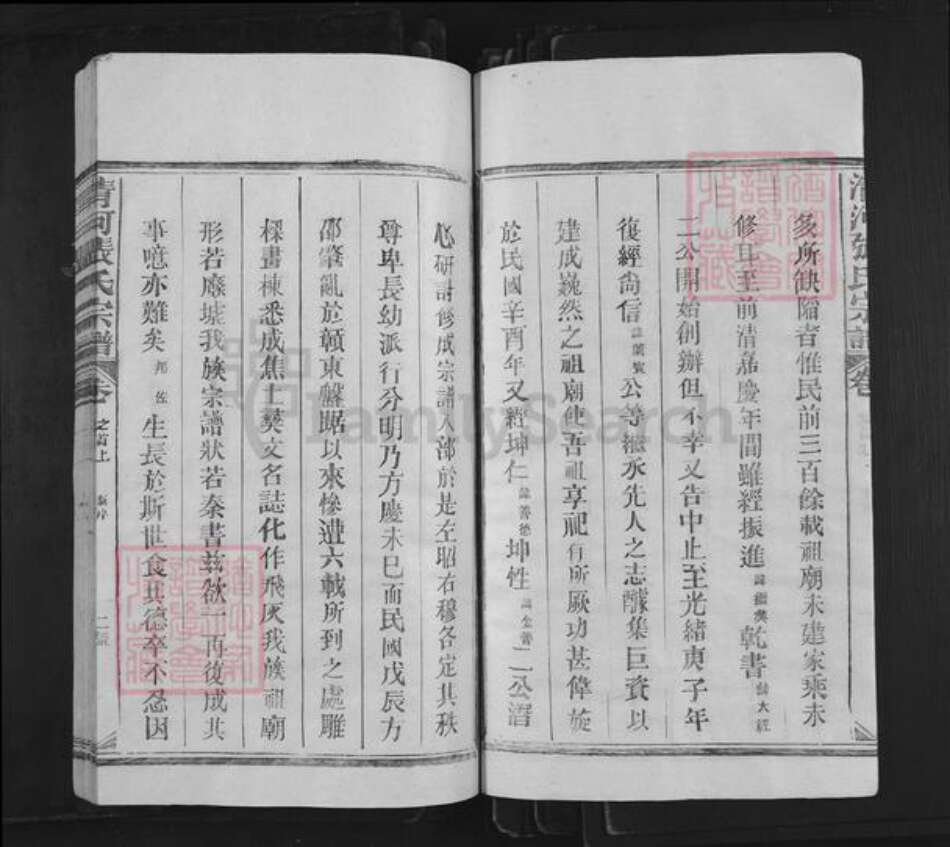 清河張氏宗譜 卷
多所缺陷者惟民前三百餘載祖廟未建家乘未
修且至前清嘉慶年間雖經振進 諱繼美 乾書 諱大經
二公開始創辦但不幸又告中止至光緒庚子年
復經尙信 公等繼承先人之志醵集巨資以
建成巍然之祖廟使吾祖享祀有所厥功甚偉旋
於民國辛酉年又經坤仁 諱善德 坤性 諱金善 二公潛
心研討修成宗譜八部於是左昭右穆各定其秩
尊卑長幼派行分明乃方慶未已而民國戊辰方
邵肇亂於贛東盤踞以來慘遭六載所到之處雕
樑畫棟悉成焦土契文名誌化作飛灰我族祖廟
形若廢墟我族宗譜狀若秦書茲欲一再復成其
事噫亦難矣 邦佐 生長於斯世食其德卒不忍因
清河張氏宗譜 卷之首上
FamilySearch